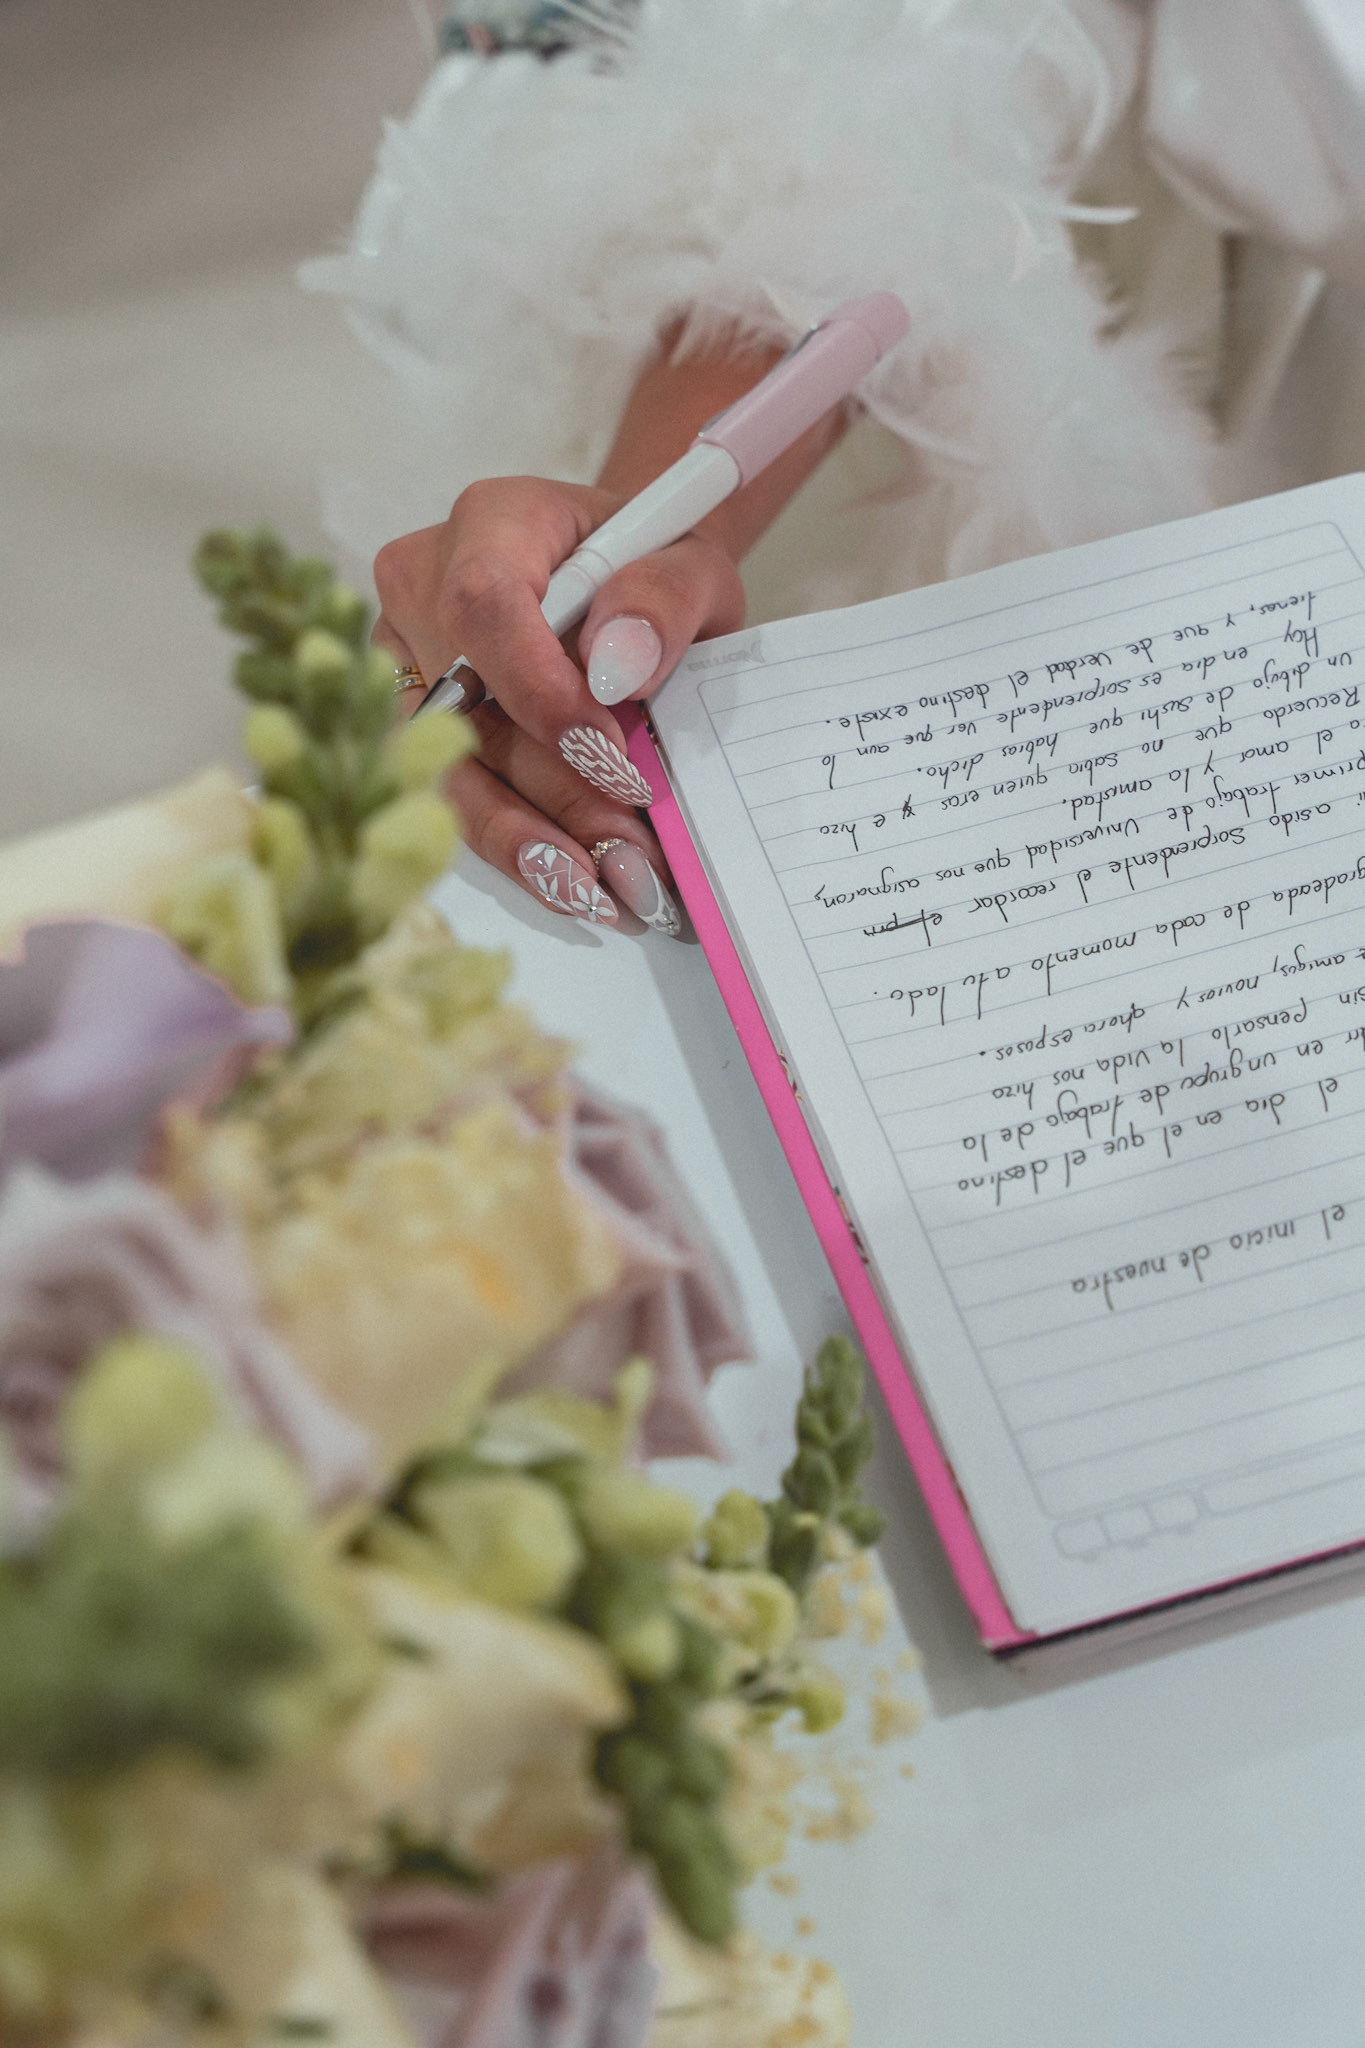 el inicio de nuestra
el dia en el que el destino
en un grupo de trabajo de la
Sin pensarlo la vida nos hizo
amigos, novios y ahora esposos.
gradeada de cada momento a tu lado.
asido sorprendente el recordar el pri
primer trabajo de Universidad que nos asignaron,
el amor y la amistad.
Recuerdo que no sabia quien eras y e hizo
un dibujo de sushi que habias dicho.
Hoy en dia es sorprendente ver que aun lo
tienes, y que de verdad el destino existe.
Norma